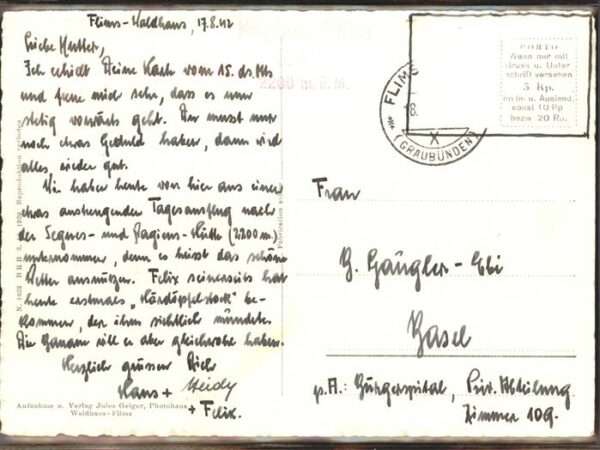 Flims-Waldhaus, 17.8.42
Liebe Mutter,
Ich erhielt Deine Karte vom 15. ds. Mts
und freue mich sehr, dass es nun
stetig vorwärts geht. Du musst nur
noch etwas Geduld haben, dann wird
alles wieder gut.
Wir haben heute von hier aus einen
etwas anstrengenden Tagesausflug nach
der Segnes- und Nagiens-Hütte (2200 m.)
unternommen, denn es heisst das schöne
Wetter ausnützen. Felix seinerseits hat
heute erstmals „Härdöpfelstock" be-
kommen, der ihm sichtlich mundete.
Die Banane will er aber gleichwohl haben.
Herzlich grüssen Dich
Hans + Heidy
+ Felix.
Aufnahme u. Verlag Jules Geiger, Photohaus
Waldhaus-Flims
2200 m. ü. M.
FLIMS
18.
X
(GRAUBÜNDEN)
PORTO
druck u. Unter
schrift versehen
5 Rp.
im In- u. Ausland
sonst 10 Rp
bezw 20 Rp.
Frau
B. Gängler-Ebi
Basel
p.A.: Bürgerspital, Priv. Abteilung
Zimmer 109.